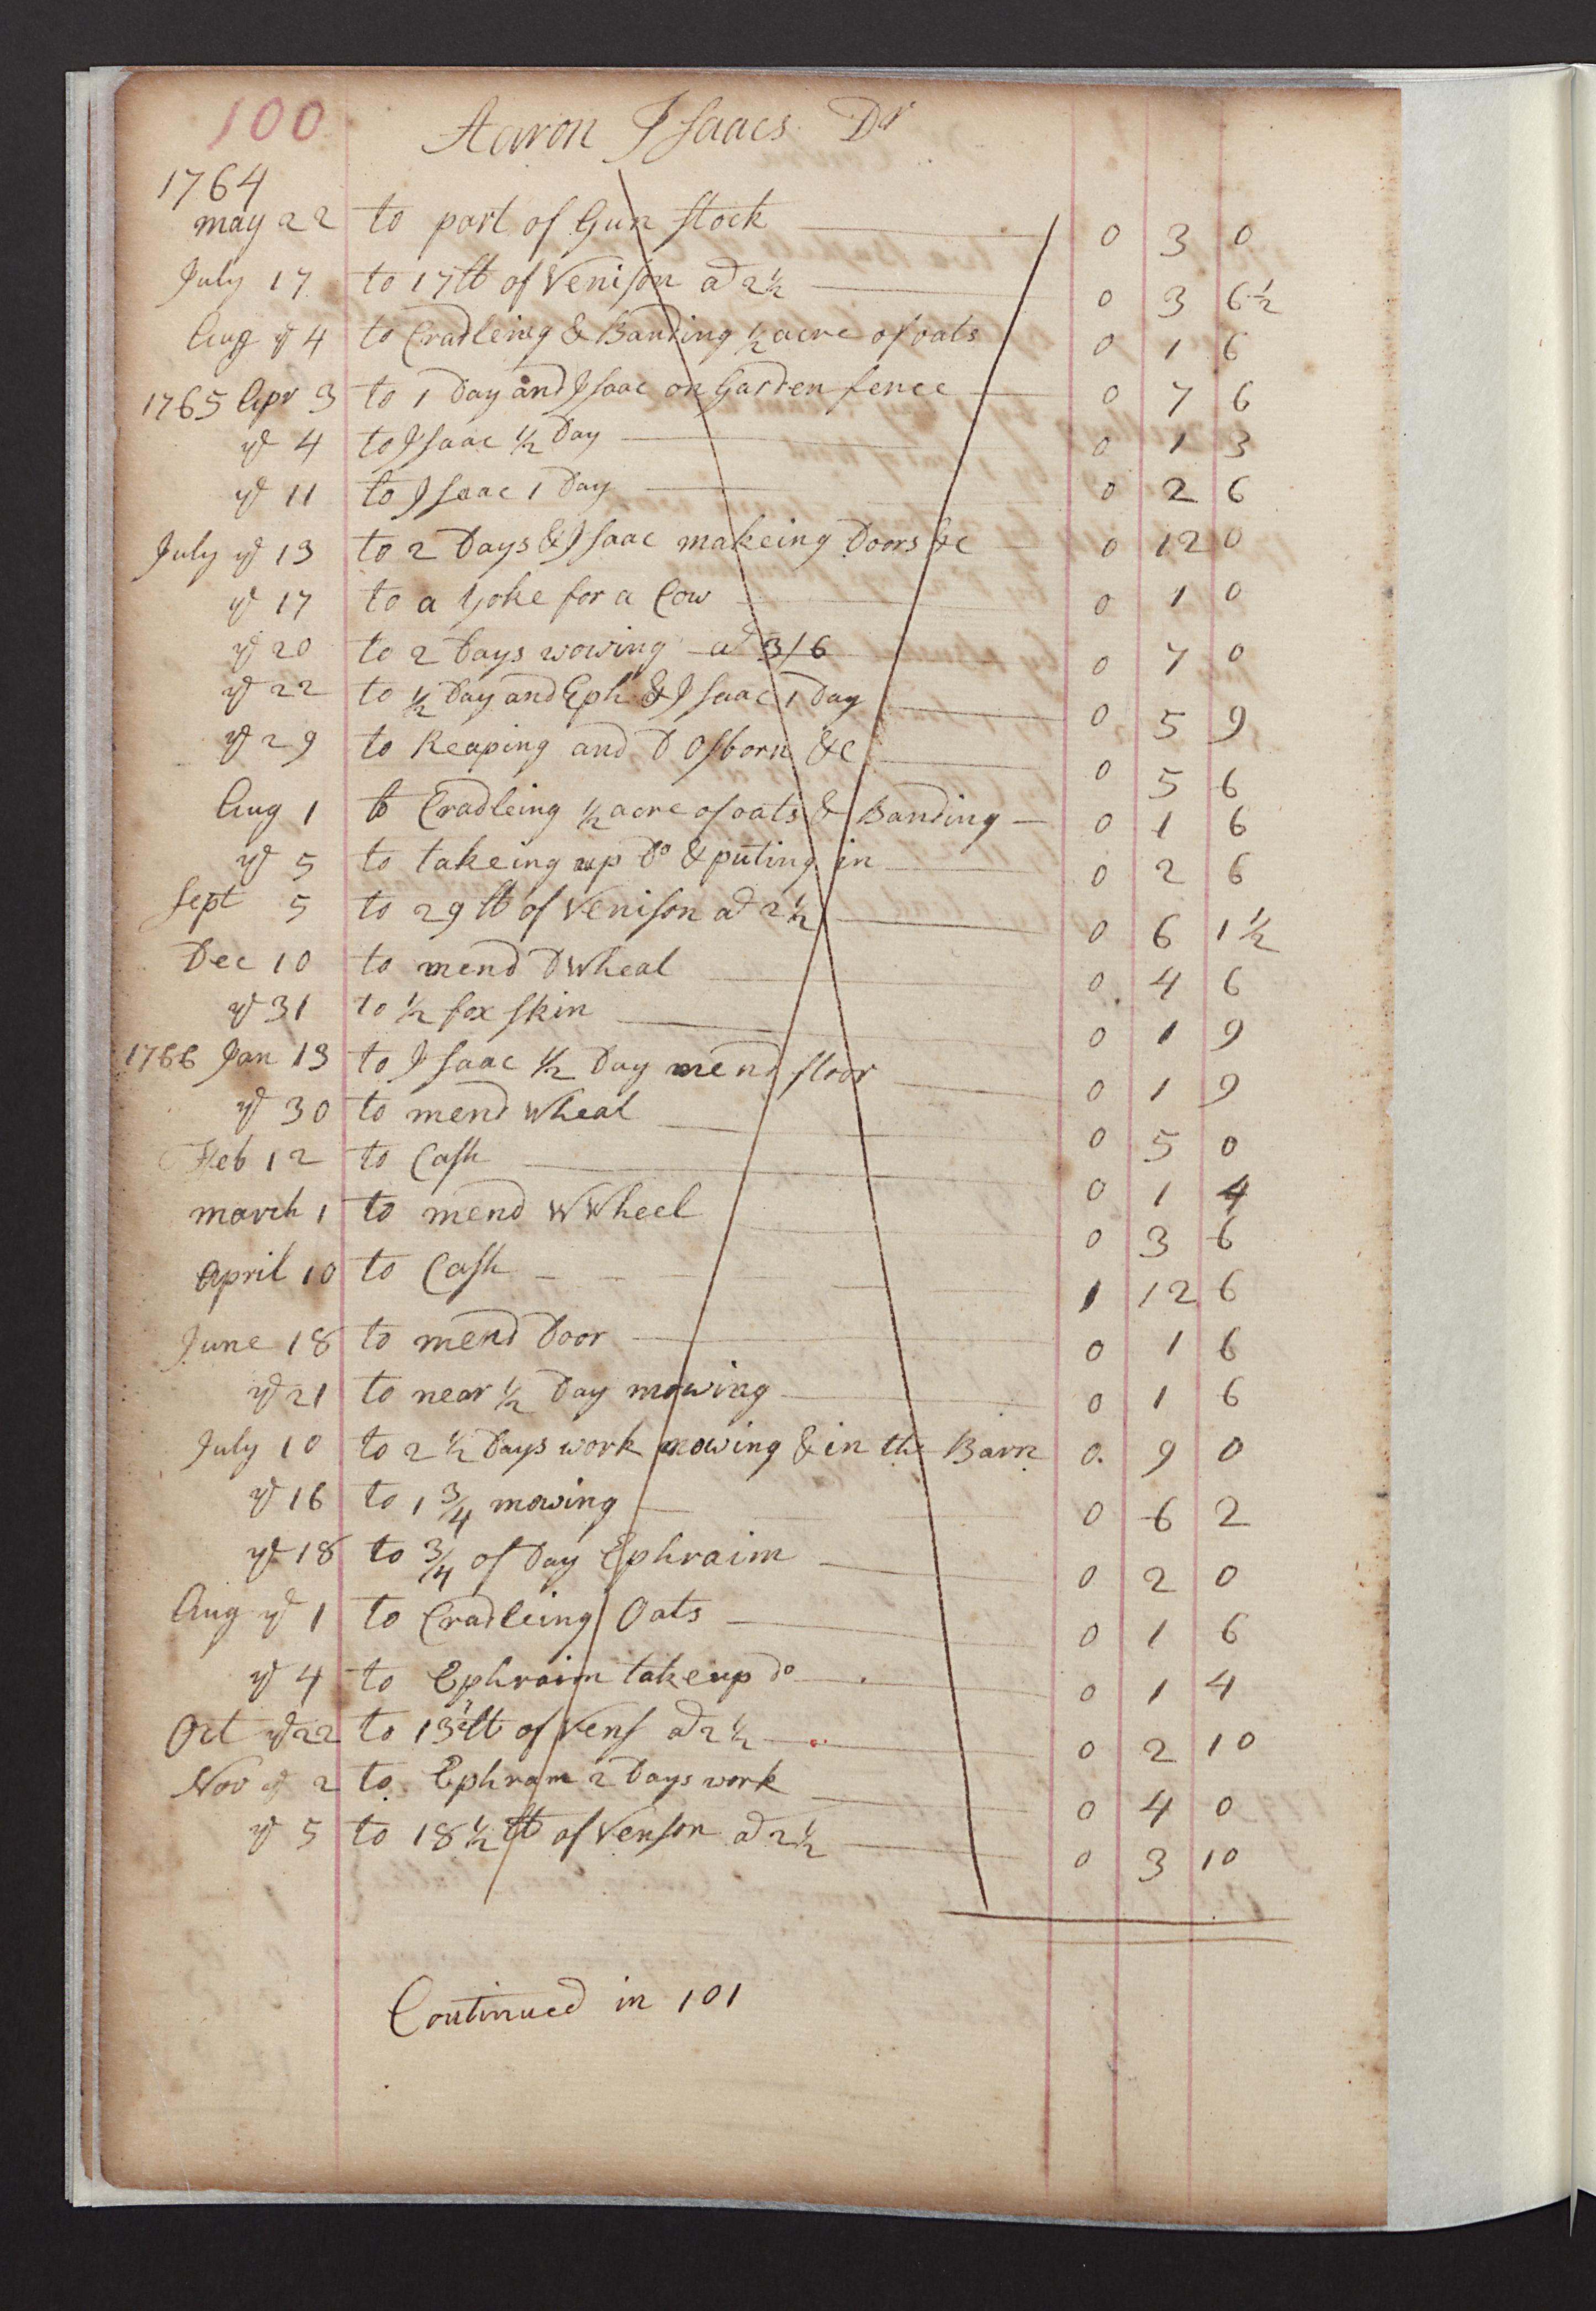 100 Aaron Isaacs Dr
1764
may 22 to part of Gun stock 0 3 0
July 17 to 17 lb of Venison ad 2½ 0 3 6½
Aug ye 4 to Cradleing & Banding ½ acre of oats 0 1 6
1765 Apr 3 to 1 Day and Isaac on Garden fence 0 7 6
ye 4 to Isaac ½ Day 0 1 3
ye 11 to Isaac 1 Day 0 2 6
July ye 13 to 2 Days & Isaac makeing Doors &c 0 12 0
ye 17 to a Yoke for a Cow 0 1 0
ye 20 to 2 Days wowing ad 3/6 0 7 0
ye 22 to ½ Day and Eph & Isaac 1 Day 0 5 9
ye 29 to Reaping and D Osborn &c 0 5 6
Aug 1 to Cradleing ½ acre of oats & Banding 0 1 6
ye 5 to takeing up Do & puting in 0 2 6
Sept 5 to 29 lb of Venison ad 2½ 0 6 1½
Dec 10 to mend D Wheal 0 4 6
ye 31 to ½ fox skin 0 1 9
1766 Jan 13 to Isaac ½ Day mend floor 0 1 9
ye 30 to mend Wheal 0 5 0
Feb 12 to Cash 0 1 4
march 1 to mend W Wheel 0 3 6
April 10 to Cash 1 12 6
June 18 to mend Door 0 1 6
ye 21 to near ½ Day mowing 0 1 6
July 10 to 2½ Days work mowing & in the Barn 0 9 0
ye 16 to 1¾ mowing 0 6 2
ye 18 to ¾ of Day Ephraim 0 2 0
Aug ye 1 to Cradleing Oats 0 1 6
ye 4 to Ephraim take up do 0 1 4
Oct ye 22 to 13½ lb of Vens ad 2½ 0 2 10
Nov ye 2 to Ephram 2 Days work 0 4 0
ye 5 to 18½ lb of Venson ad 2½ 0 3 10
Continued in 101